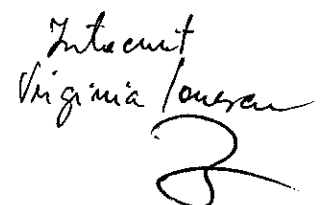 Intocmit
Virginia Ionescu